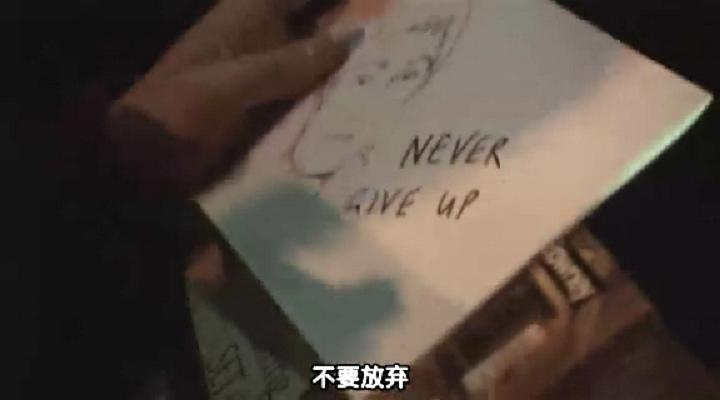 NEVER
GIVE UP
不要放弃